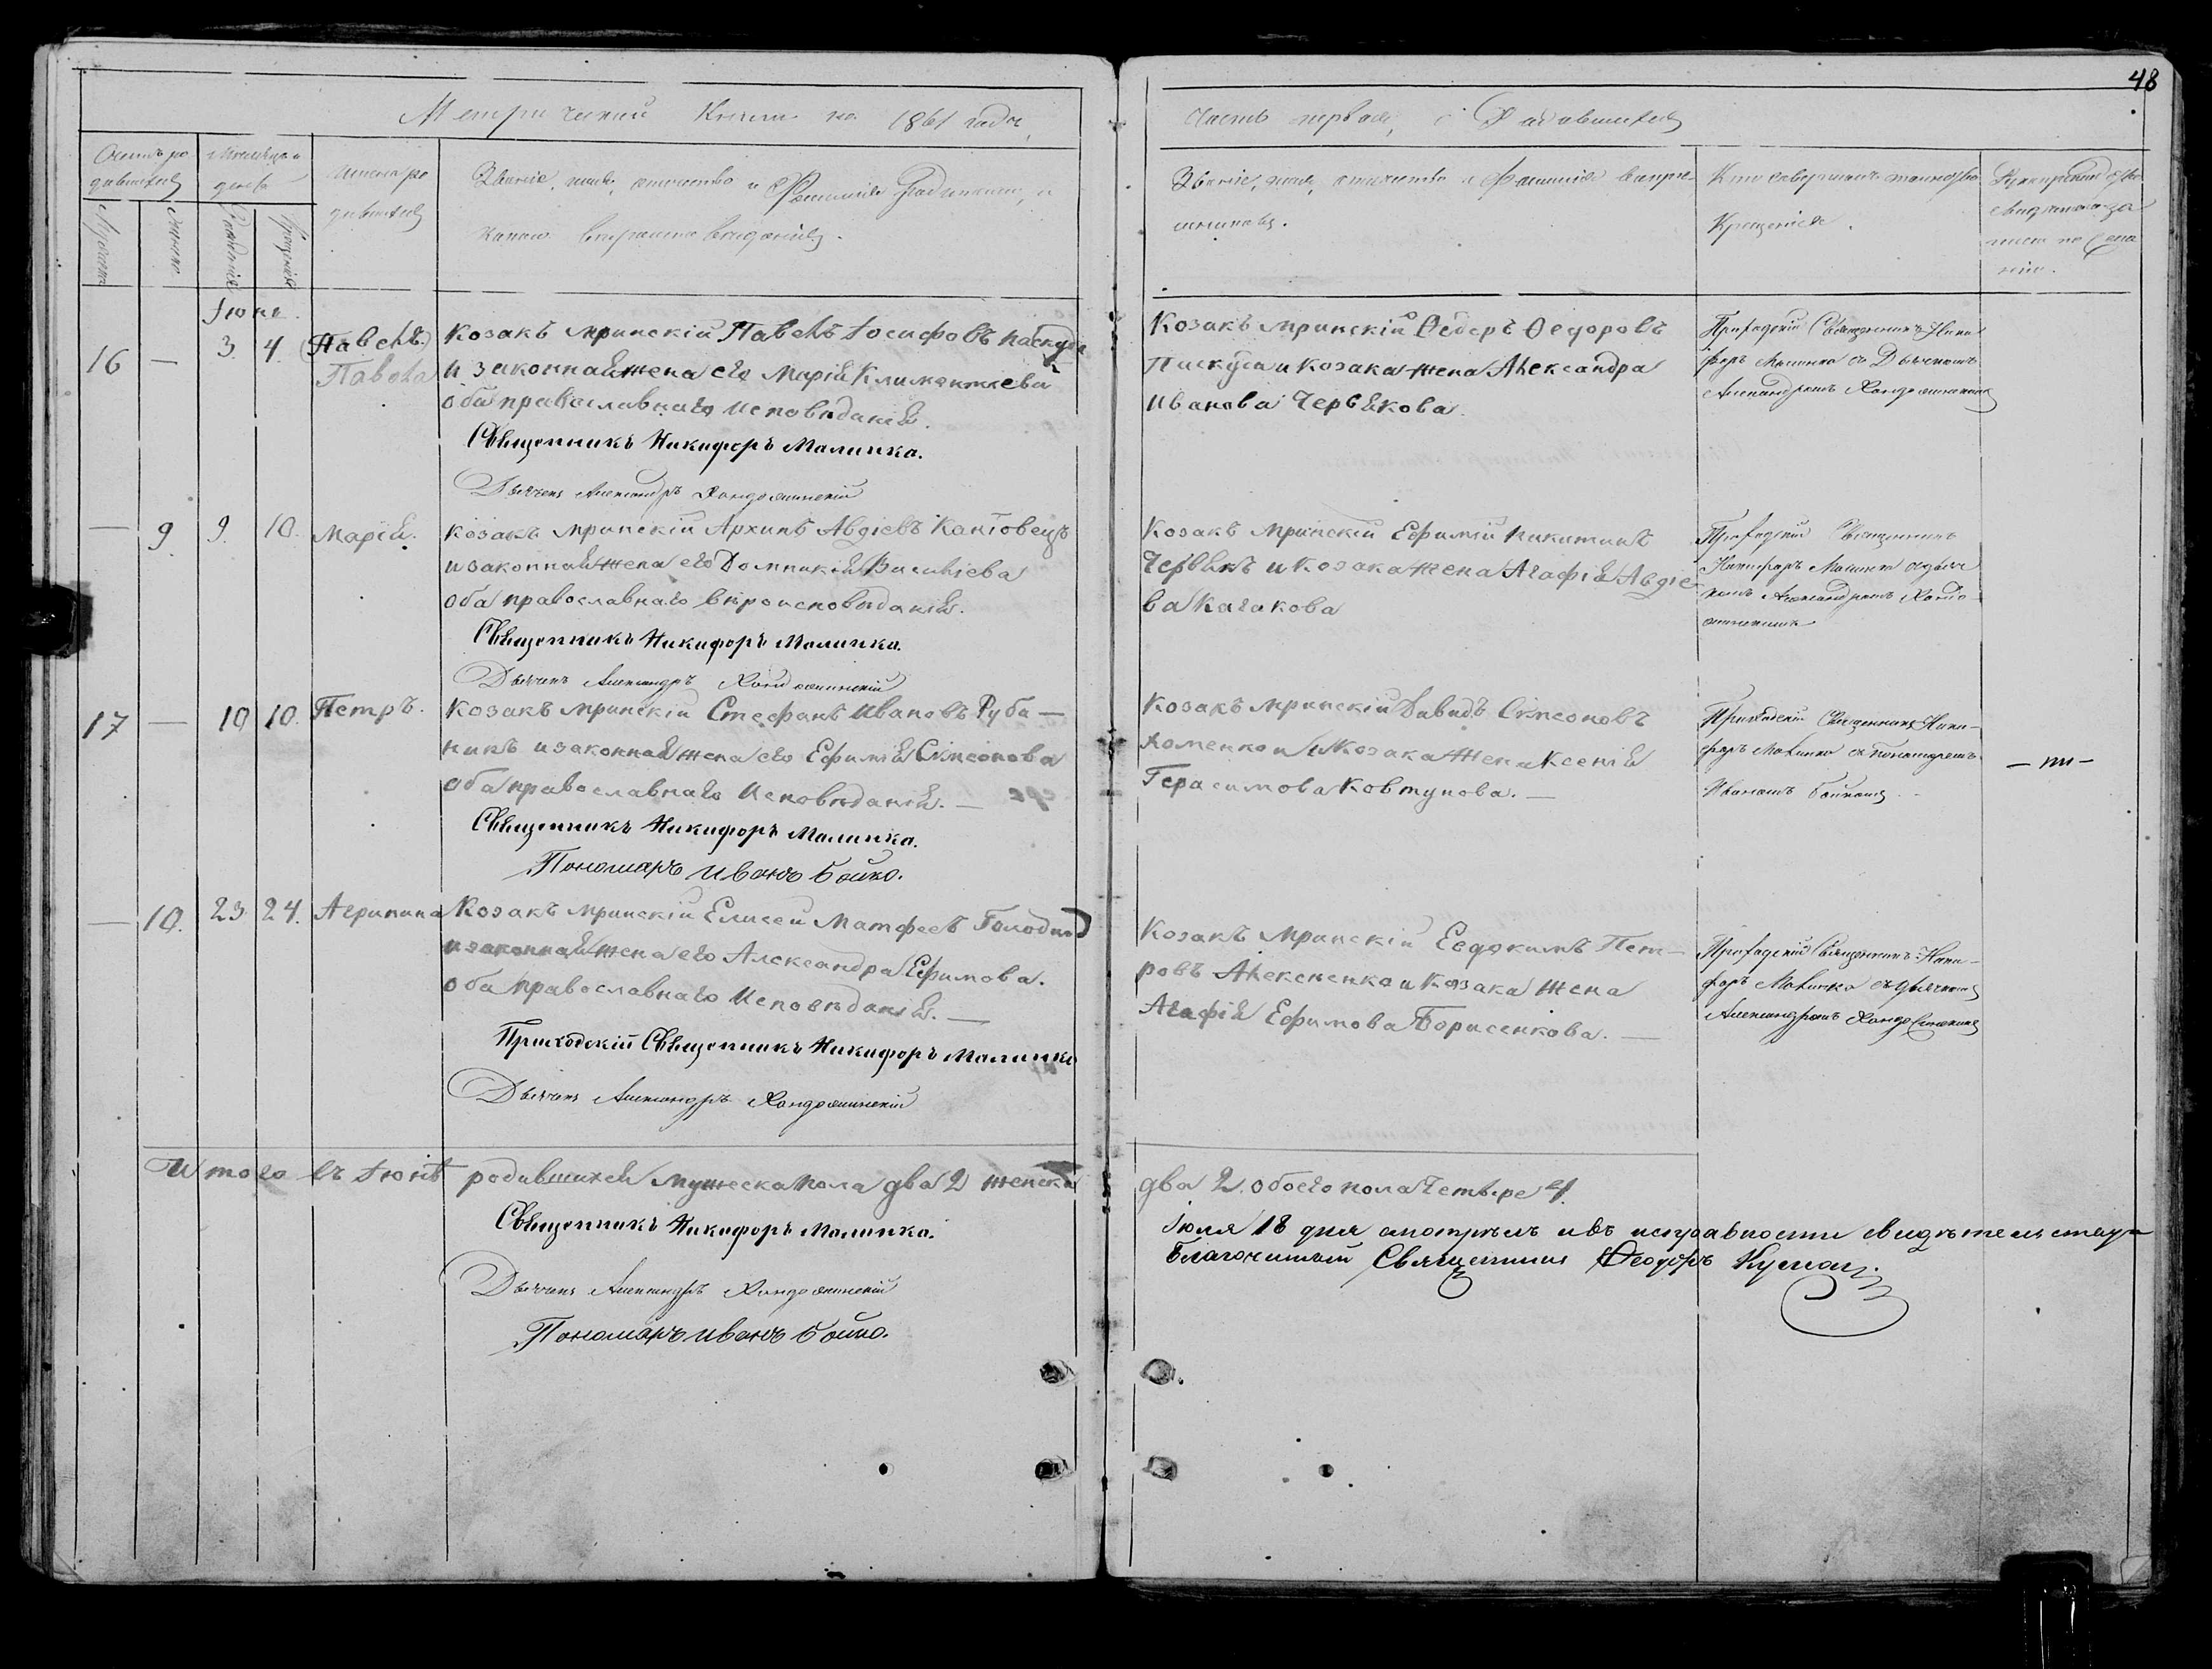 48
Метрической Книги на 1861 годъ,
Часть первая, о Родившихся
Счетъ ро
дившихся
Мужеска
Женска
Мѣсяцъ и
день
Рожденія
Крещенія
Имена ро
дившихся
Званіе, имя, отчество и Фамилія Родителей, и
какого вѣроисповѣданія.
Званіе, имя, отчество и фамилія воспріе-
мниковъ.
Кто совершалъ таинство
Крещенія.
Рукоприкладство
свидѣтелей за
писи по жела
нію.
Іюнь.
16 — 3 4. (Павелъ.)
Павла
Козакъ мринскій Павелъ Іосифовъ Паскуда
и законная жена его Марія Климентіева
оба православнаго исповѣданія.
Священникъ Никифоръ Малинка.
Дьячекъ Александръ
Козакъ мринскій Ѳедоръ Ѳедоровъ
Паскуда и козака жена Александра
Иванова Червякова.
Приходскій Священникъ Ники
форъ Малинка съ Дьячкомъ
Александромъ
— 9. 9. 10. Марія.
Козакъ мринскій Архипъ Авдіевъ
и законная жена его Домникія Василіева
оба православнаго вѣроисповѣданія.
Священникъ Никифоръ Малинка.
Дьячекъ Александръ
Козакъ мринскій Ефимій Никитинъ
Червякъ и козака жена Агафія Авдіе-
ва
Приходскій Священникъ
Никифоръ Малинка съ дьяч
комъ Александромъ
17 — 10 10. Петръ.
Козакъ мринскій Стефанъ Ивановъ Руба—
никъ и законная жена его Ефимія Симеонова
оба православнаго исповѣданія. —
Священникъ Никифоръ Малинка.
Пономаръ Иванъ Бойко.
Козакъ мринскій Давидъ Симеоновъ
Хоменко и козака жена Ксенія
Герасимова Ковтунова. —
Приходскій Священникъ Ники-
форъ Малинка съ пономаремъ
Иваномъ Бойкомъ
— 10. 23 24. Агрипина
Козакъ мринскій Елисей Матфеевъ
и законная жена его Александра Ефимова.
оба православнаго исповѣданія. —
Приходскій Священникъ Никифоръ Малинка
Дьячекъ Александръ
Козакъ мринскій Евдокимъ Пет—
ровъ Алексеенко и козака жена
Агафія Ефимова Борисенкова. —
Приходскій Священникъ Ники-
форъ Малинка съ дьячкомъ
Александромъ
Итого въ Іюнѣ родившихся мужеска пола два 2 женска
два 2. обоего пола четыре 4.
Священникъ Никифоръ Малинка.
Дьячекъ Александръ
Пономаръ Иванъ Бойко.
Іюля 18 дня смотрѣлъ и въ исправности свидѣтельствую
Благочинный Священникъ Ѳеодоръ